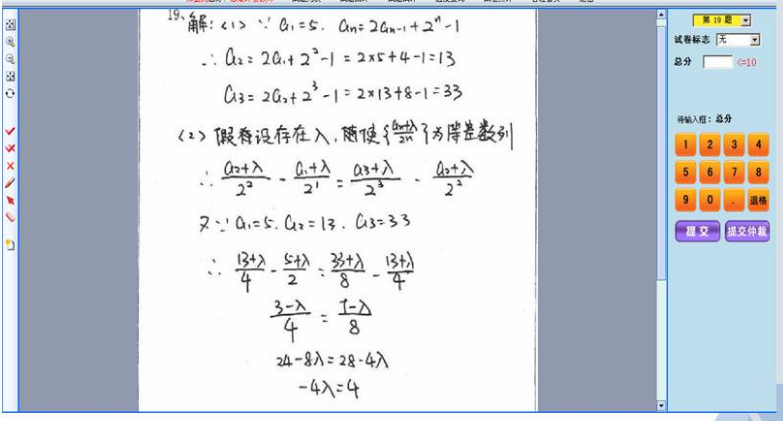 19、解:(1) ∵ a₁=5. aₙ=2aₙ₋₁+2ⁿ-1
∴ a₂=2a₁+2²-1=2×5+4-1=13
a₃=2a₂+2³-1=2×13+8-1=33
(2) 假设存在λ,使{(aₙ+λ)/2ⁿ}为等差数列
∴ (a₂+λ)/2² - (a₁+λ)/2¹ = (a₃+λ)/2³ - (a₂+λ)/2²
又∵ a₁=5. a₂=13. a₃=33
∴ (13+λ)/4 - (5+λ)/2 = (33+λ)/8 - (13+λ)/4
(3-λ)/4 = (7-λ)/8
24-8λ=28-4λ
-4λ=4
第 19 题
试卷标志 无
总分 <=10
待输入框:总分
1 2 3 4
5 6 7 8
9 0 . 退格
提交 提交仲裁